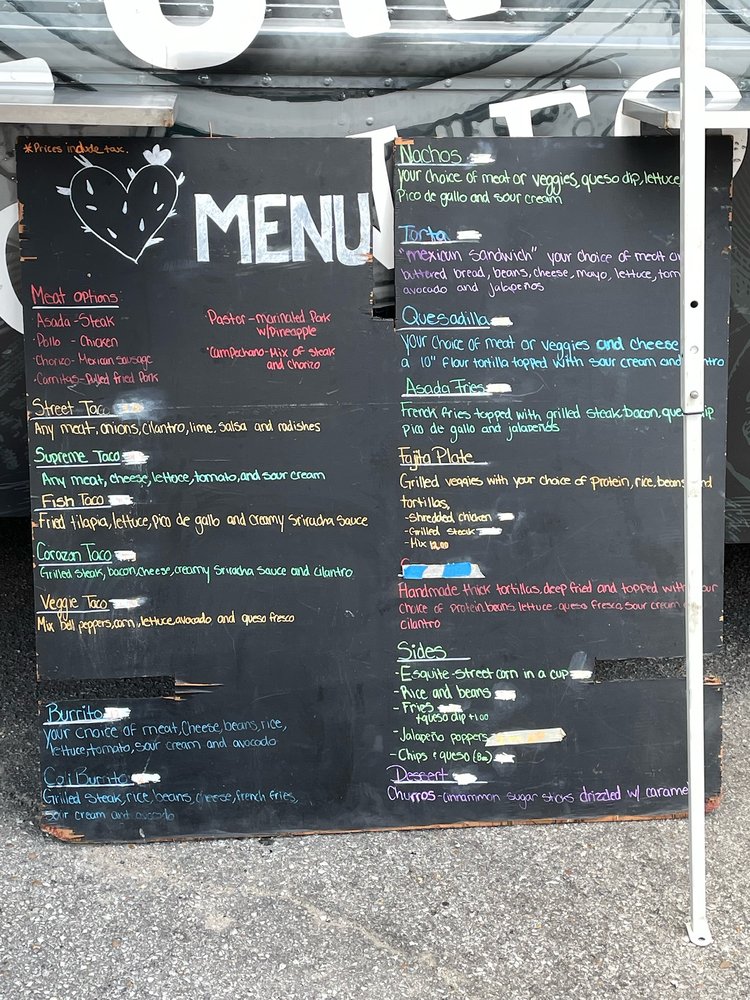 *Prices include tax.
MENU
Meat options
Asada - Steak
Pollo - Chicken
Chorizo - Mexican sausage
Carnitas - Pulled fried Pork
Pastor - marinated Pork
w/Pineapple
Campechano - Mix of steak
and chorizo
Street Taco
Any meat, onions, cilantro, lime, salsa and radishes
Supreme Taco
Any meat, cheese, lettuce, tomato, and sour cream
Fish Taco
Fried tilapia, lettuce, pico de gallo and creamy sriracha sauce
Corazon Taco
Grilled steak, bacon, cheese, creamy sriracha sauce and cilantro
Veggie Taco
Mix bell peppers, corn, lettuce, avocado and queso fresco
Burrito
your choice of meat, cheese, beans, rice,
lettuce, tomato, sour cream and avocado
Cali Burrito
Grilled steak, rice, beans, cheese, french fries,
sour cream and avocado
Nachos
your choice of meat or veggies, queso dip, lettuce
Pico de gallo and sour cream
Torta
"mexican sandwich" your choice of meat on
buttered bread, beans, cheese, mayo, lettuce, tom
avocado and jalapeños
Quesadilla
your choice of meat or veggies and cheese
a 10" flour tortilla topped with sour cream and
Asada Fries
French fries topped with grilled steak, bacon, dip
pico de gallo and jalapeños
Fajita Plate
Grilled veggies with your choice of protein, rice, beans
tortillas,
- Shredded chicken
- Grilled steak
- Mix
Handmade thick tortillas, deep fried and topped with
choice of protein beans, lettuce, queso fresco, sour cream
cilantro
Sides
- Esquite - street corn in a cup
- Rice and beans
- Fries
+queso dip +1.00
- Jalapeño poppers
- Chips & queso (8oz)
Dessert
Churros - cinnammon sugar sticks drizzled w/ carame